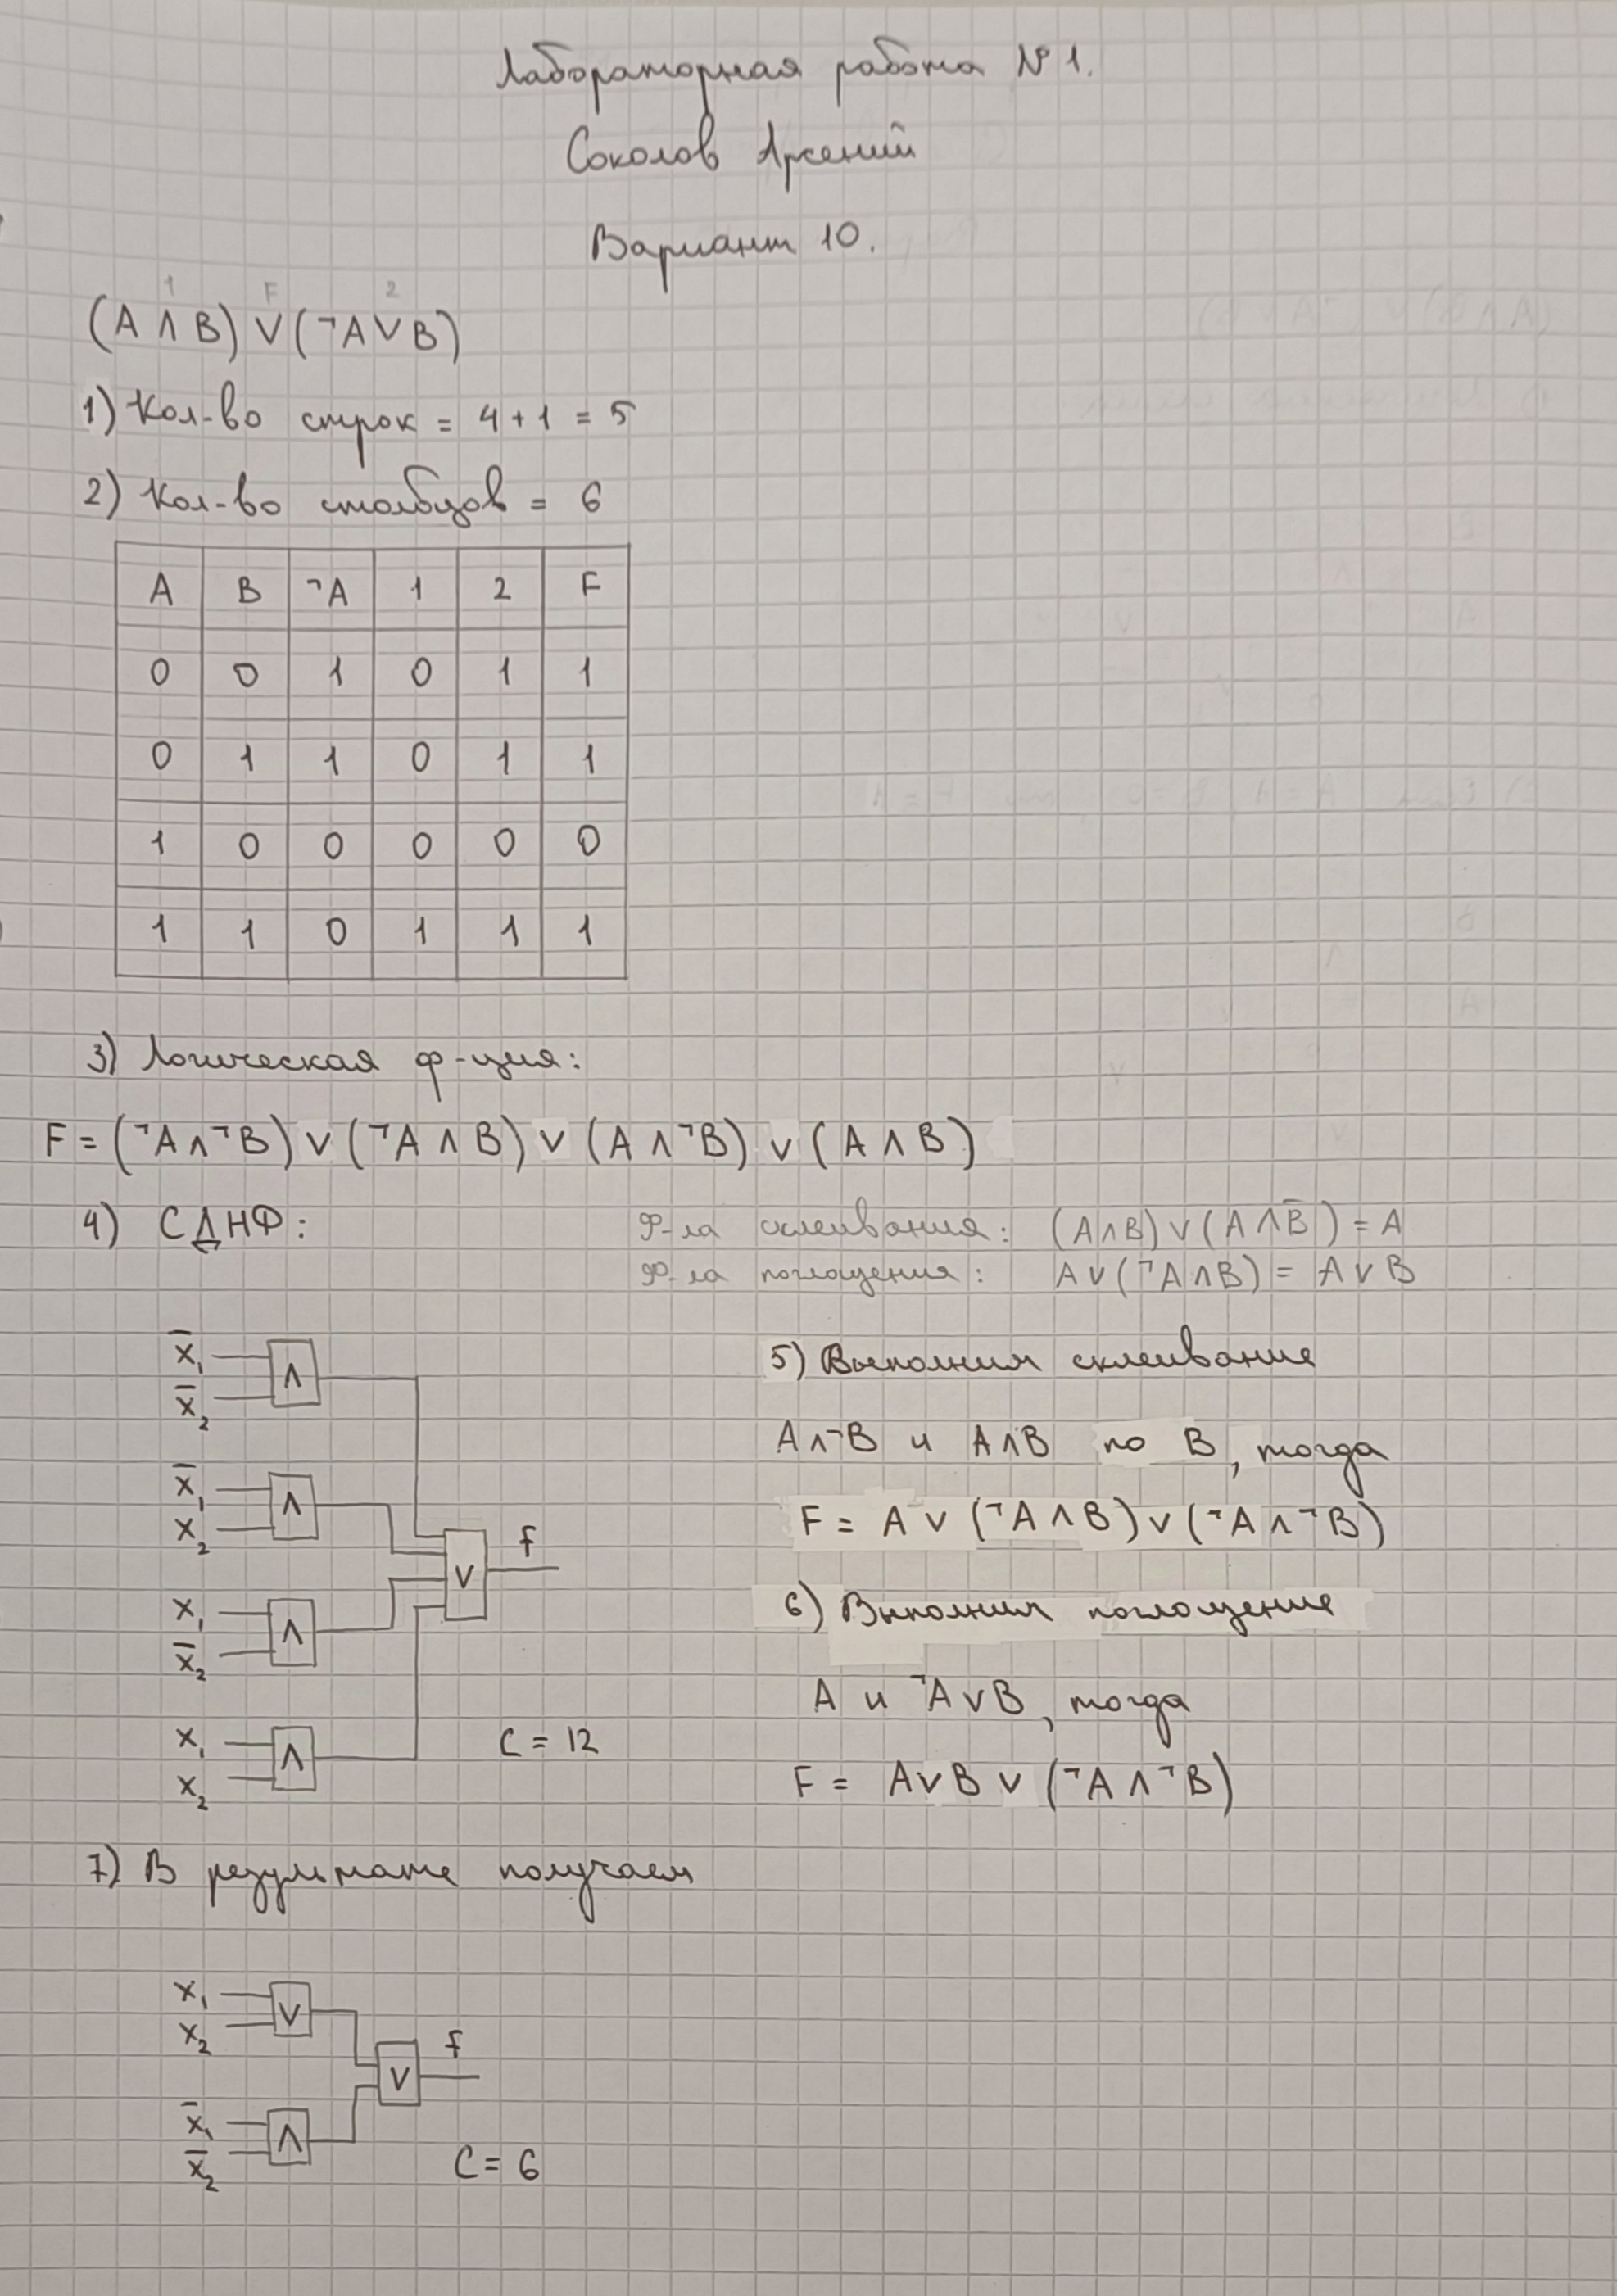 Лабораторная работа № 1.
Соколов Арсений
Вариант 10.
1 F 2
(A ∧ B) ∨ (¬A ∨ B)
1) Кол-во строк = 4 + 1 = 5
2) Кол-во столбцов = 6
A B ¬A 1 2 F
0 0 1 0 1 1
0 1 1 0 1 1
1 0 0 0 0 0
1 1 0 1 1 1
3) Логическая ф-ция:
F = (¬A ∧ ¬B) ∨ (¬A ∧ B) ∨ (A ∧ ¬B) ∨ (A ∧ B)
4) СДНФ:
Ф-ла склеивания: (A ∧ B) ∨ (A ∧ B̅) = A
Ф-ла поглощения: A ∨ (¬A ∧ B) = A ∨ B
x̅₁
x̅₂
∧
x̅₁
x₂
∧
x₁
x̅₂
∧
x₁
x₂
∧
∨
f
C = 12
5) Выполним склеивание
A ∧ ¬B и A ∧ B по B, тогда
F = A ∨ (¬A ∧ B) ∨ (¬A ∧ ¬B)
6) Выполним поглощение
A и ¬A ∨ B, тогда
F = A ∨ B ∨ (¬A ∧ ¬B)
7) В результате получаем
x₁
x₂
∨
x̅₁
x̅₂
∧
∨
f
C = 6